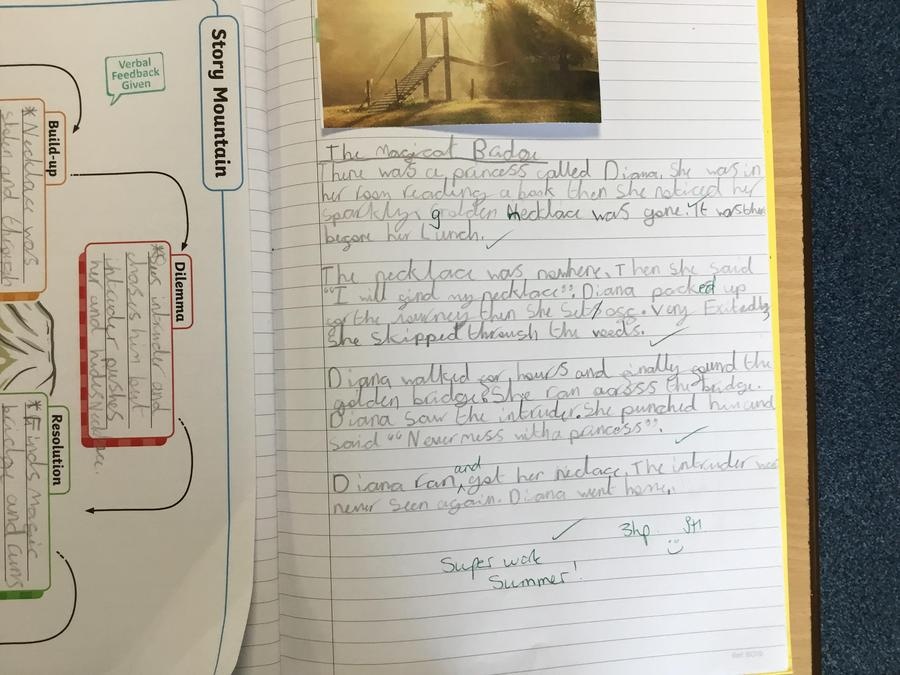 Story Mountain
Verbal
Feedback
Given
Build-up
*Necklace was
stolen and through
Dilemma
*Sees intruder and
chases him but
intruder pushes
her and hides
Resolution
*Finds magic
bridge and runs
The Magical Bridge
There was a princess called Diana. She was in
her room reading a book then she noticed her
sparkly, golden Necklace was gone. It was
before her Lunch.
The necklace was nowhere. Then she said
"I will find my necklace". Diana packed up
for the journey then she set off. Very Exitedly
she skipped through the
Diana walked for hours and finally found the
golden bridge. She ran across the bridge.
Diana saw the intruder. She punched him and
said "Never mess with a princess".
and
Diana ran, got her neclace. The intruder was
never seen again. Diana went home.
3hp
Super work
Summer!